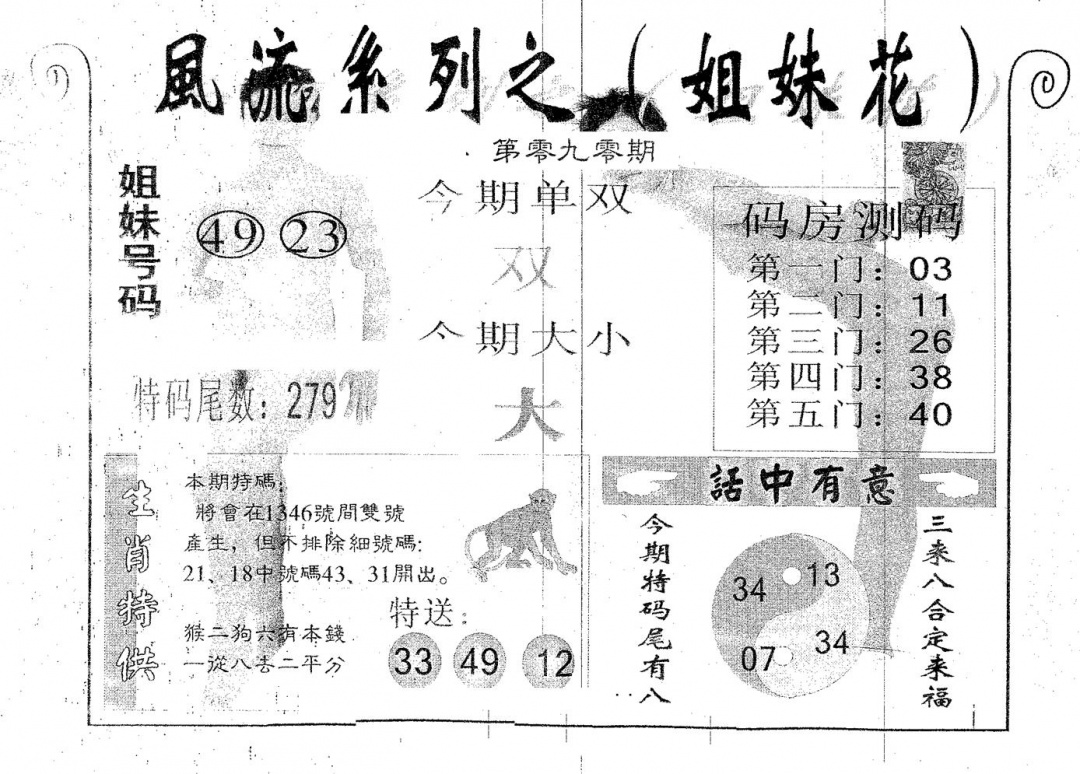 風流系列之（姐妹花）
第零九零期
姐妹号码
49 23
今期单双
双
今期大小
大
特码尾数：279
码房测码
第一门：03
第二门：11
第三门：26
第四门：38
第五门：40
生肖特供
本期特碼：
將會在1346號間雙號
產生，但不排除細號碼:
21、18中號碼43、31開出。
猴二狗六有本錢
一從八去二平分
特送：
33 49 12
話中有意
今期特码尾有八
34 13
07 34
三来八合定来福